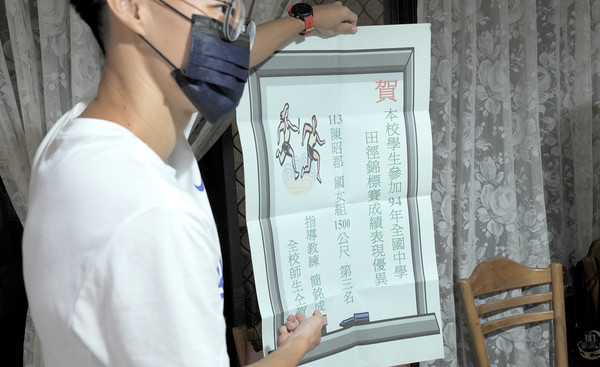 賀
本校學生參加94年全國中學
田徑錦標賽成績表現優異
113 陳昭郡 國女組1500公尺 第三名
指導教練 簡銘成
全校師生全